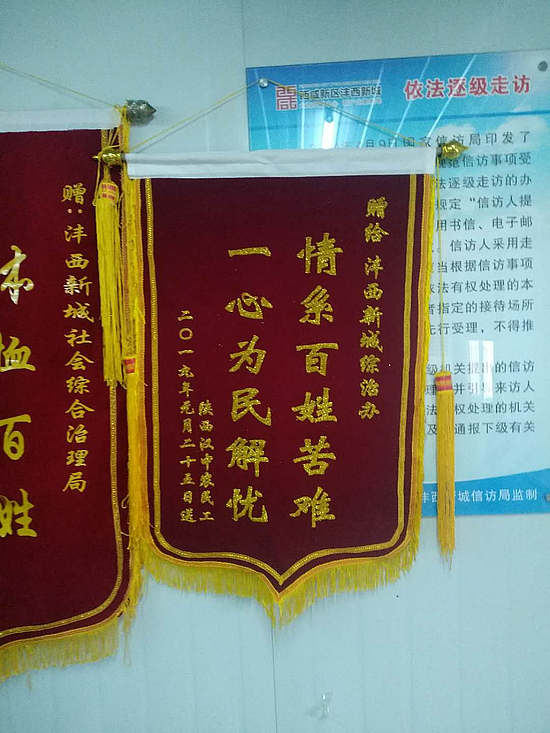 赠给 沣西新城综治办
情系百姓苦难
一心为民解忧
陕西汉中农民工
二〇一九年元月二十五日送
赠：沣西新城社会综合治理局
百姓
西咸新区沣西新城
依法逐级走访
月9日国家信访局印发了
范信访事项受
法逐级走访的办
规定“信访人提
用书信、电子邮
信访人采用走
当根据信访事项
依法有权处理的本
者指定的接待场所
先行受理，不得推
级机关提出的信访
理 并引导来访人
法 权处理的机关
及 通报下级有关
沣西新城信访局监制